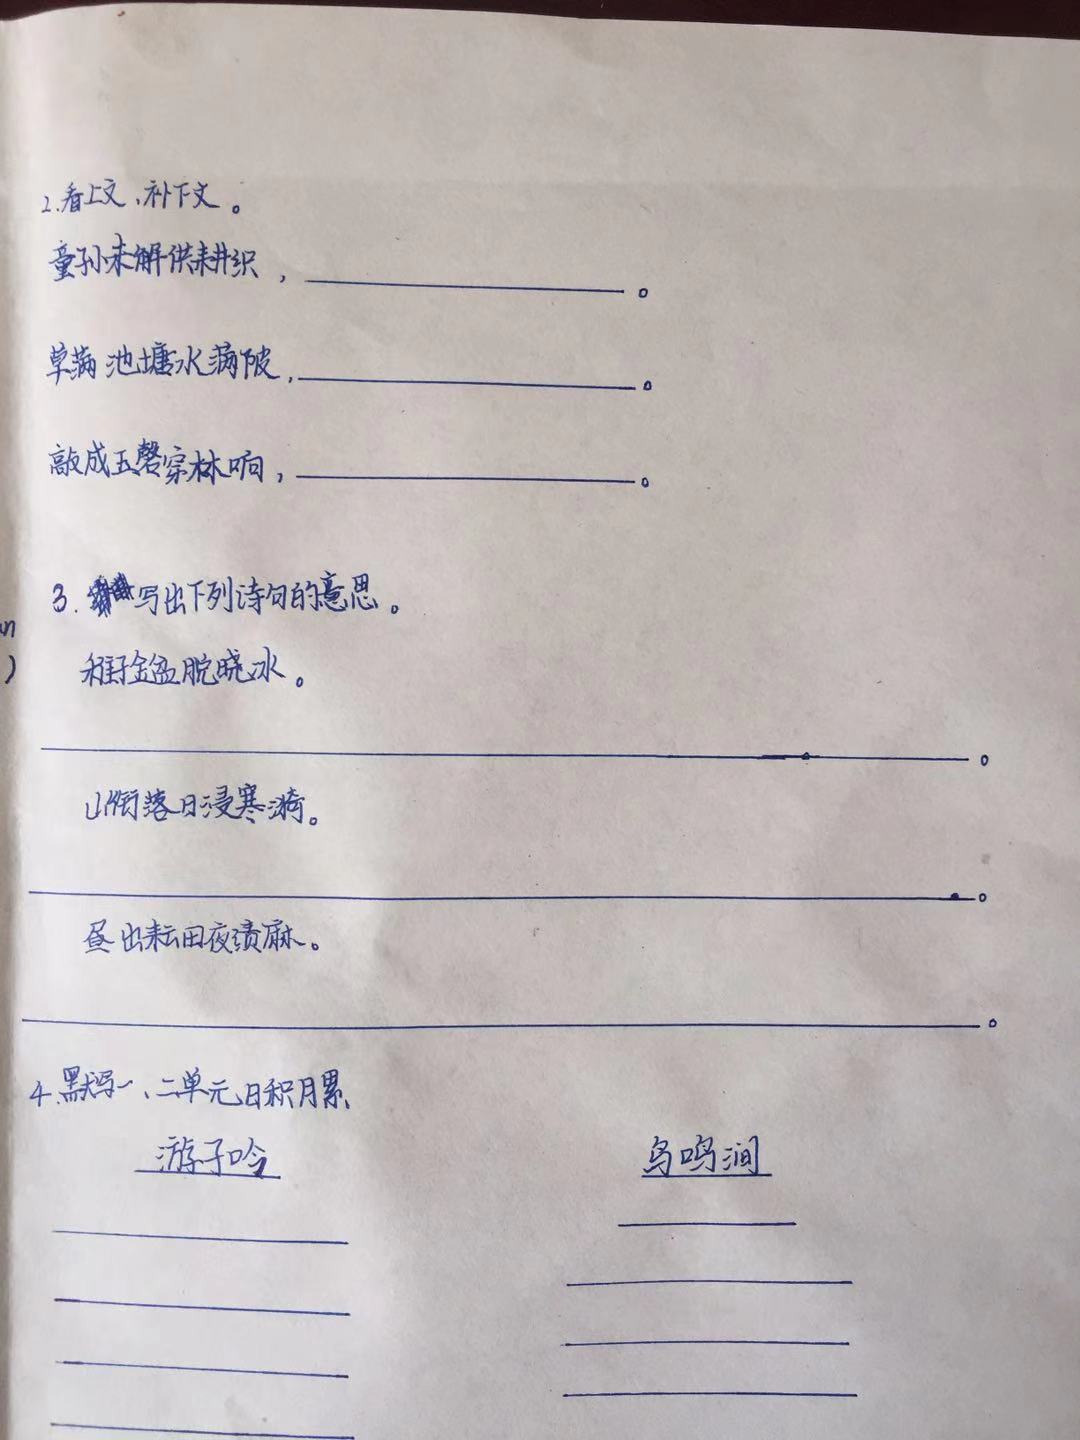 2.看上文,补下文。
童孙未解供耕织,。
草满池塘水满陂,。
敲成玉磬穿林响,。
3.写出下列诗句的意思。
稚子金盆脱晓冰。
。
山衔落日浸寒漪。
。
昼出耘田夜绩麻。
。
4.默写一、二单元日积月累
游子吟 鸟鸣涧
)